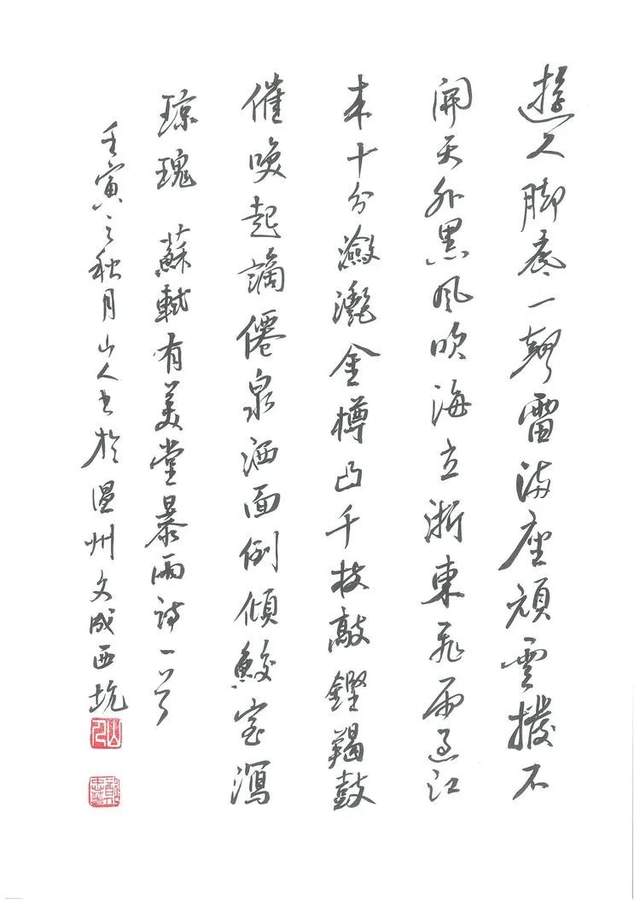 遊人脚底一聲雷滿座頑雲撥不
開天外黑風吹海立浙東飛雨過江
来十分瀲灩金樽凸千杖敲鏗羯鼓
催唤起謫僊泉洒面倒傾鮫室瀉
琼瑰 蘇軾有美堂暴雨詩一首
壬寅之秋月山人書於温州文成西坑
山人